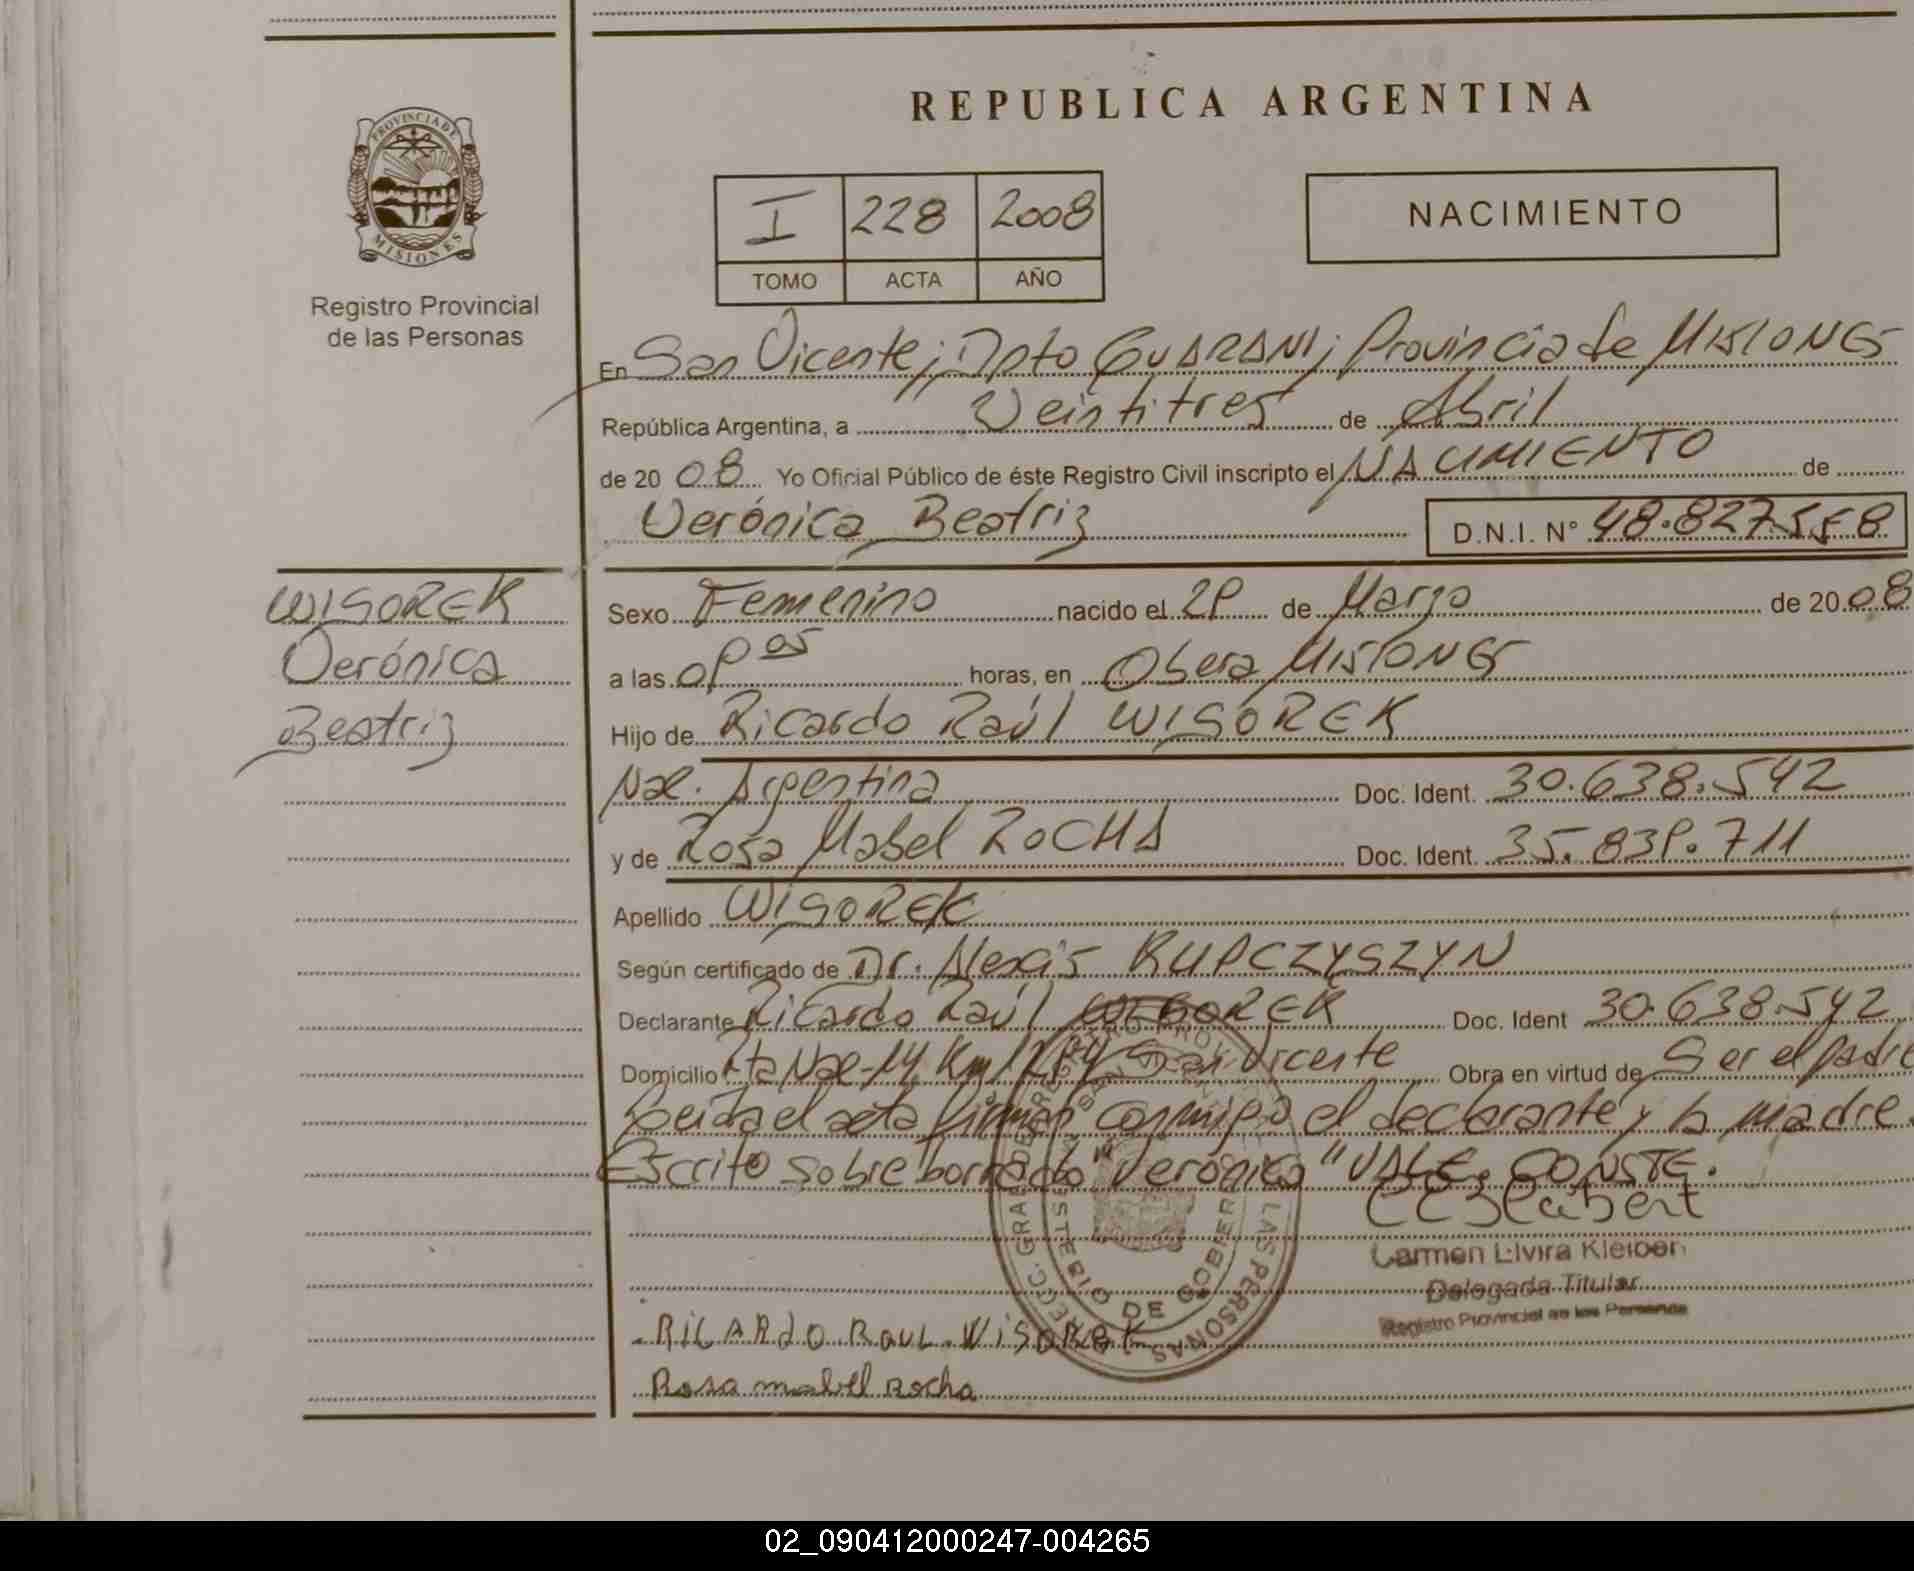 REPUBLICA ARGENTINA
PROVINCIA DE
MISIONES
Registro Provincial
de las Personas
I 228 2008
TOMO ACTA AÑO
NACIMIENTO
En San Vicente; Dpto GUARANI; Provincia de MISIONES
República Argentina, a Veintitres de Abril
de 20 08 Yo Oficial Público de éste Registro Civil inscripto el NACIMIENTO de
Verónica Beatriz D.N.I. N° 48.827.558
WISOREK
Verónica
Beatriz
Sexo Femenino nacido el 29 de Marzo de 20 08
a las 09 05 horas, en Obera MISIONES
Hijo de Ricardo Raúl WISOREK
Nac. Argentina Doc. Ident. 30.638.542
y de Rosa Mabel ROCHA Doc. Ident. 35.839.711
Apellido WISOREK
Según certificado de Dr. Alexis KUPCZYSZYN
Declarante Ricardo Raúl WISOREK Doc. Ident 30.638.542
Domicilio Rta Nac-14 Km San Vicente Obra en virtud de Ser el padre
Leida el acta firman conmigo el declarante y la madre.
Escrito sobre borrado "Verónica" VALE. CONSTE.
Carmen Elvira Kleiber
Delegada Titular
Registro Provincial de las Personas
RICARDO RAUL WISOREK
Rosa mabel Rocha
02_090412000247-004265